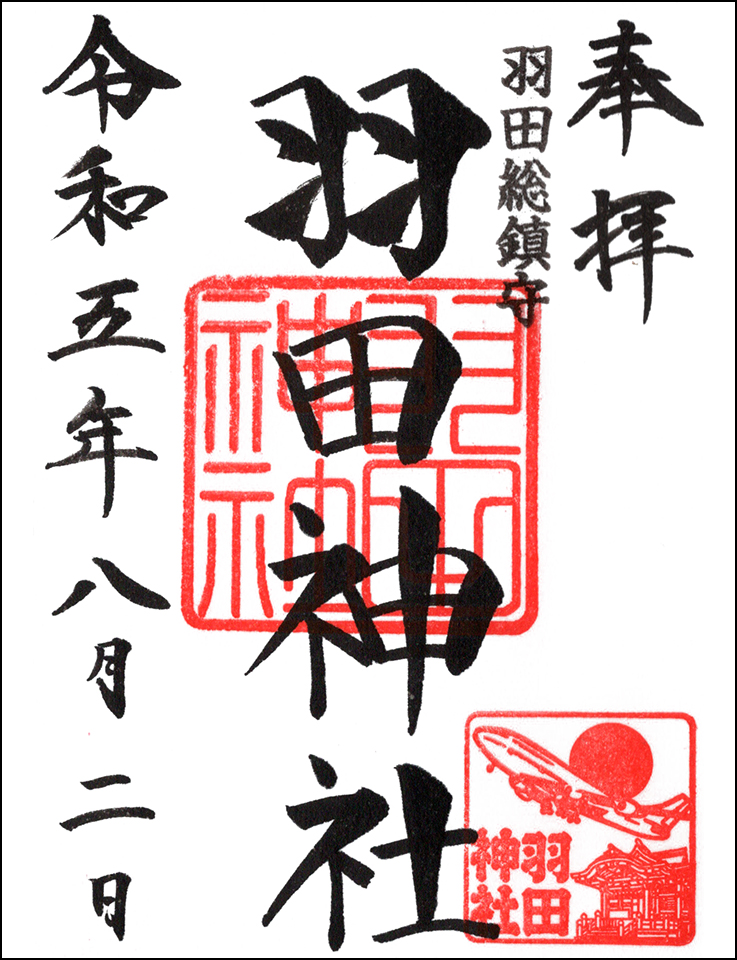 奉拝
羽田総鎮守
羽田神社
令和五年八月二日
羽田
神社